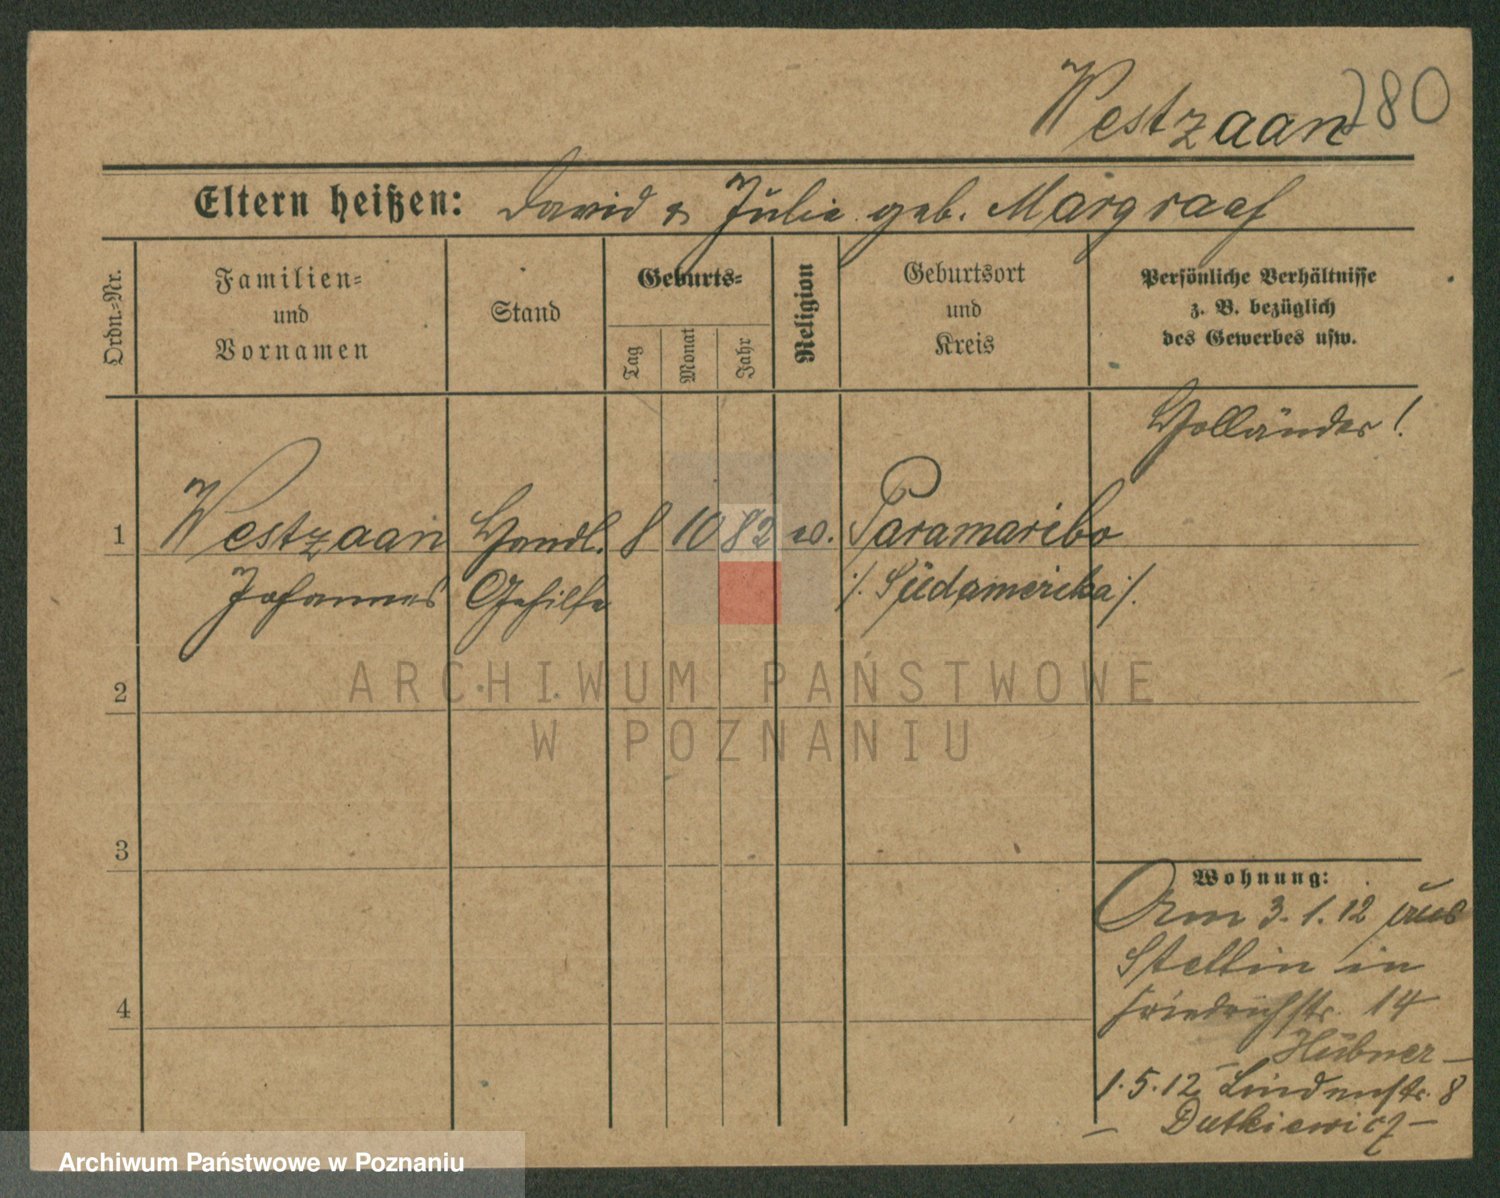 Westzaan 280
Eltern heißen: David & Julie geb. Margraaf
Ordn.-Nr.
Familien-
und
Vornamen
Stand
Geburts-
Tag
Monat
Jahr
Religion
Geburtsort
und
Kreis
Persönliche Verhältnisse
z. B. bezüglich
des Gewerbes usw.
Holländer!
1 Westzaan Handl. 8 10 82 Paramaribo
Johannes Gehilfe /. Südamerika ./.
2
3
4
Wohnung:
Am 3.1.12 aus
Stettin in
Friedrichstr. 14
– Hübner –
1.5.12 Lindenstr. 8
– Dutkiewicz –
ARCHIWUM PAŃSTWOWE
W POZNANIU
Archiwum Państwowe w Poznaniu